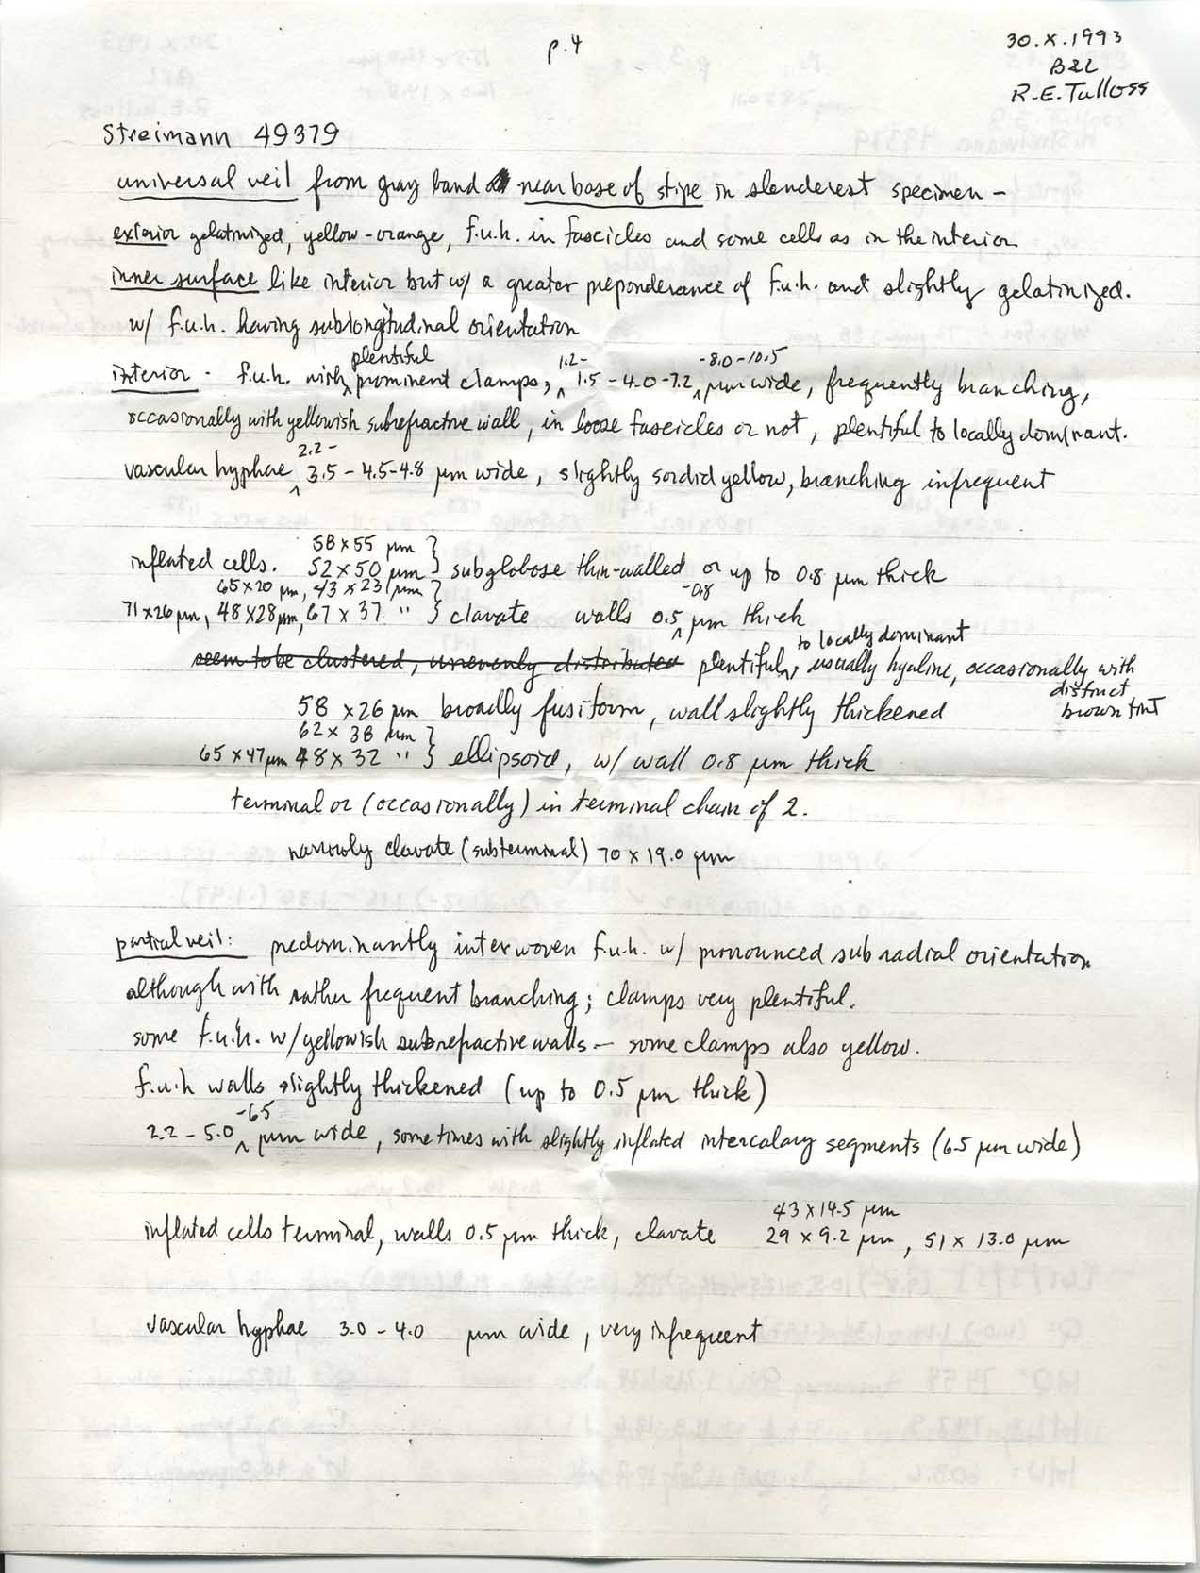 p.4
30.X.1993
B&L
R.E. Tulloss
Streimann 49379
universal veil from gray band near base of stipe in slenderest specimen -
exterior gelatinized, yellow-orange, f.u.h. in fascicles and some cells as in the interior
inner surface like interior but w/ a greater preponderance of f.u.h. and slightly gelatinized.
w/ f.u.h. having sublongitudinal orientation
plentiful 1.2- -8.0-10.5
interior - f.u.h. with prominent clamps, 1.5 - 4.0 - 7.2 µm wide, frequently branching,
occasionally with yellowish subrefractive wall, in loose fascicles or not, plentiful to locally dominant.
2.2-
vascular hyphae 3.5 - 4.5-4.8 µm wide, slightly sordid yellow, branching infrequent
58 x 55 µm }
inflated cells. 52 x 50 µm } subglobose thin-walled or up to 0.8 µm thick
65 x 20 µm, 43 x 23 µm } -0.8
71 x 26 µm, 48 x 28 µm, 67 x 37 " } clavate walls 0.5 µm thick
to locally dominant
seem to be clustered, unevenly distributed plentiful, usually hyaline, occasionally with
distinct
brown tint
58 x 26 µm broadly fusiform, wall slightly thickened
62 x 38 µm }
65 x 47 µm 48 x 32 " } ellipsoid, w/ wall 0.8 µm thick
terminal or (occasionally) in terminal chain of 2.
narrowly clavate (subterminal) 70 x 19.0 µm
partial veil: predominantly interwoven f.u.h. w/ pronounced subradial orientation
although with rather frequent branching; clamps very plentiful.
some f.u.h. w/ yellowish subrefractive walls - some clamps also yellow.
f.u.h walls slightly thickened (up to 0.5 µm thick)
-6.5
2.2 - 5.0 µm wide, sometimes with slightly inflated intercalary segments (6.5 µm wide)
43 x 14.5 µm
inflated cells terminal, walls 0.5 µm thick, clavate 29 x 9.2 µm, 51 x 13.0 µm
vascular hyphae 3.0 - 4.0 µm wide, very infrequent